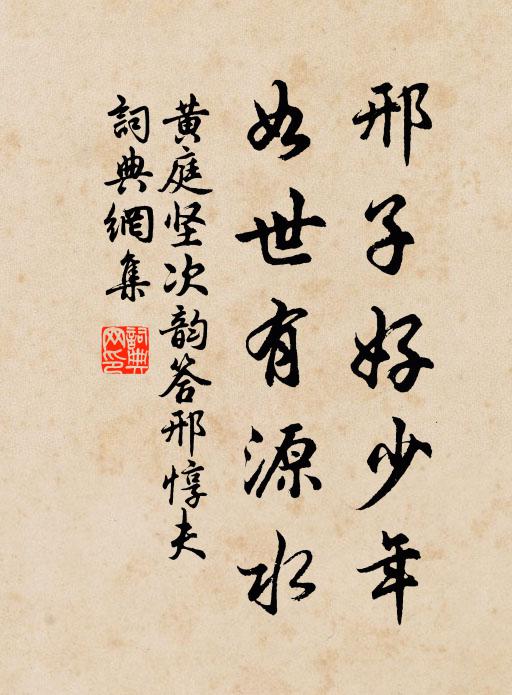 邢子好少年
如世有源水
黄庭坚次韵答邢惇夫
詞典網集
詞典網印